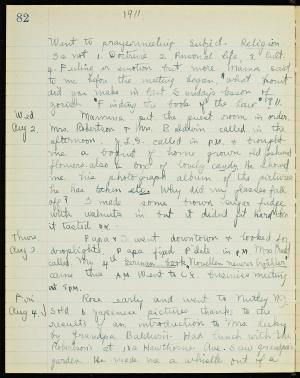 82
1911
Went to prayermeeting Subject. Religion
is not 1. Doctrine 2. Personal life, 3. Cult.
4. Feeling or emotion but more. Mama said
to me before the meeting began, "What profit
did you make in last Sunday's lesson of
Josiah "Finding the book of the law" 1911.
Wed Mamma put the guest room in order.
Aug 2. Mrs. Robertson & Mrs. Baldwin called in the
afternoon. J.L.S. called in P.M. & brought
me a boquet of home grown old fashioned
flowers also a box of candy. He showed
me his photograph album of the pictures
he has taken. Why did my glasses fall
off? I made some brown sugar fudge
with walnuts in but it didn't get hard
it tasted O.K.
Thurs. Papa & I went downtown & looked for
Aug 3. droplights. Papa fixed P. date in P.M.
called. My 4th German
came this A.M. Went to C.E. business meeting
at 8 P.M.
Fri Rose early and went to Nutley N.J.
Aug 4. Sold 6 Japanese pictures thanks to the
results of an introduction to Mrs.
by Grandpa Baldwin. Had lunch with the
Robinsons at 150 Hawthorne Ave. Saw Grandpa's
garden. He made me a whistle out of a